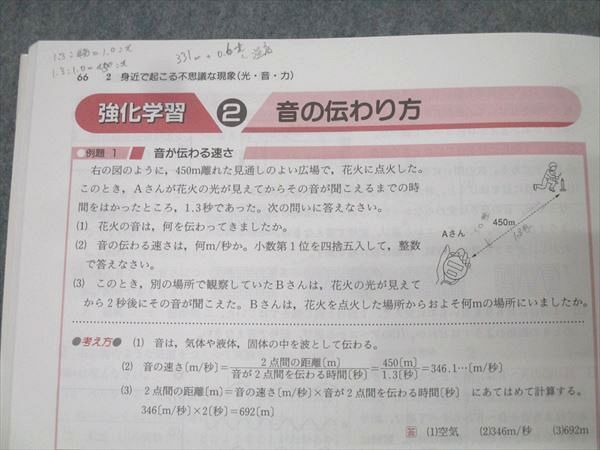 1.3:450=1.0:x
1.3:1.0=450:x
66 2 身近で起こる不思議な現象(光・音・力)
強化学習 2 音の伝わり方
例題 1 音が伝わる速さ
右の図のように,450m離れた見通しのよい広場で,花火に点火した。
このとき,Aさんが花火の光が見えてからその音が聞こえるまでの時
間をはかったところ,1.3秒であった。次の問いに答えなさい。
(1) 花火の音は,何を伝わってきましたか。
(2) 音の伝わる速さは,何m/秒か。小数第1位を四捨五入して,整数
で答えなさい。
(3) このとき,別の場所で観察していたBさんは,花火の光が見えて
から2秒後にその音が聞こえた。Bさんは,花火を点火した場所からおよそ何mの場所にいましたか。
450m
Aさん
●考え方● (1) 音は,気体や液体,固体の中を波として伝わる。
(2) 音の速さ〔m/秒〕=2点間の距離〔m〕/音が2点間を伝わる時間〔秒〕=450〔m〕/1.3〔秒〕=346.1…〔m/秒〕
(3) 2点間の距離〔m〕=音の速さ〔m/秒〕×音が2点間を伝わる時間〔秒〕 にあてはめて計算する。
346〔m/秒〕×2〔秒〕=692〔m〕
答 (1)空気 (2)346m/秒 (3)692m